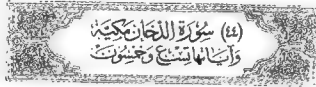 (٤٤) سُورَةُ الدُّخَانِ مَكِيَّة
وَآيَاتُهَا تِسْعٌ وَخَمْسُونَ